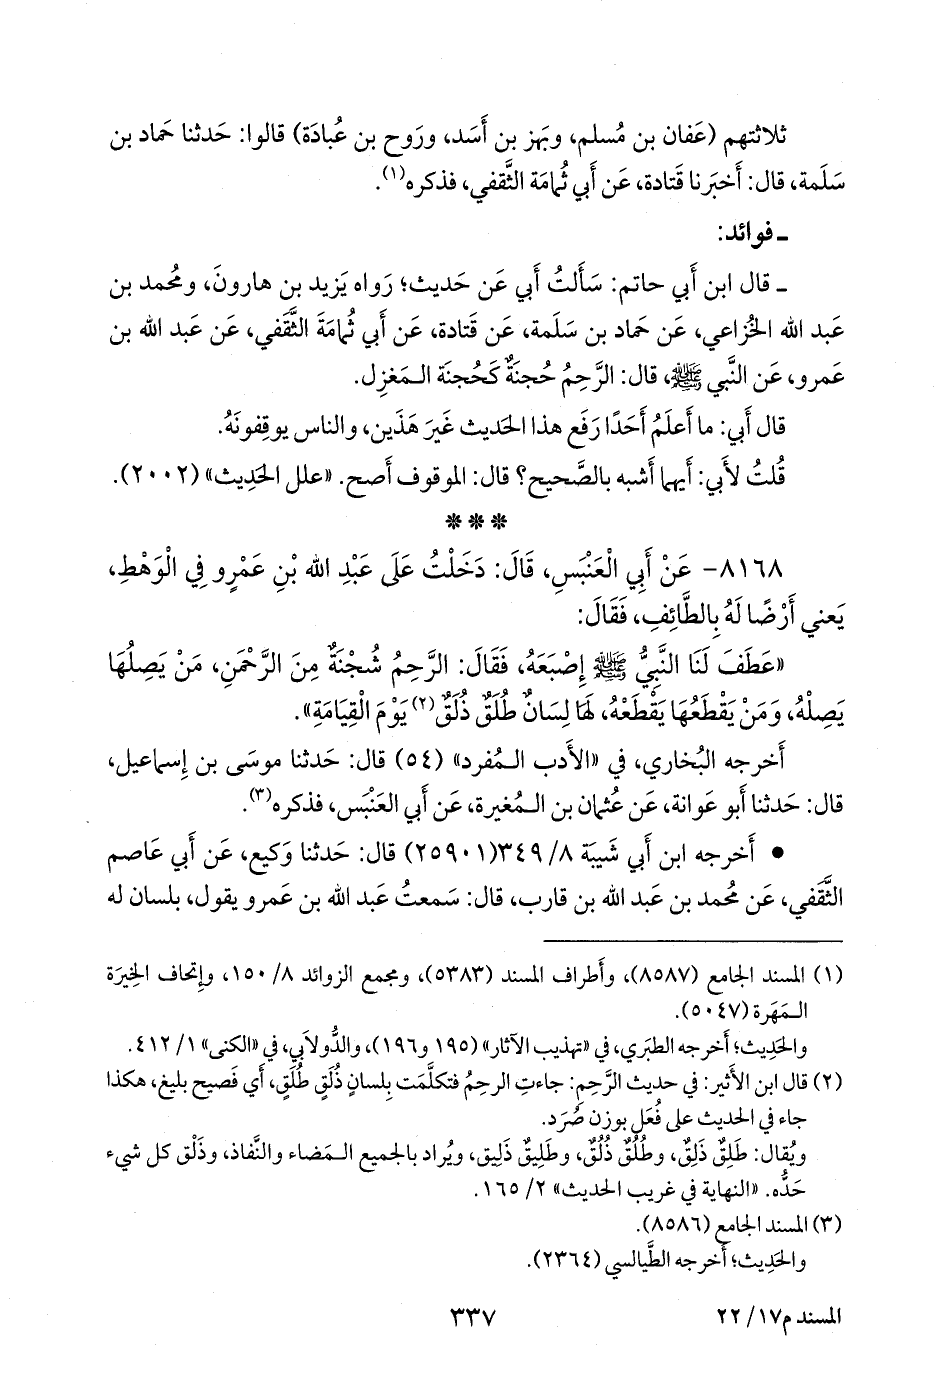 ثلاثتهم (عَفان بن مُسلم، وبَهز بن أَسَد، ورَوح بن عُبادَة) قالوا: حَدثنا حَماد بن
سَلَمة، قال: أَخبَرنا قَتادة، عَن أَبي ثُمامَة الثَّقفي، فذكره(١).
ـ فوائد:
ـ قال ابن أَبي حاتم: سَأَلتُ أَبي عَن حَديث؛ رَواه يَزيد بن هارونَ، ومُحمد بن
عَبد الله الخُزاعي، عَن حَماد بن سَلَمة، عَن قَتادة، عَن أَبي ثُمامَةَ الثَّقَفي، عَن عَبد الله بن
عَمرو، عَن النَّبي ﷺ، قال: الرَّحِمُ حُجنَةٌ كَحُجنَة الـمَغزِل.
قال أَبي: ما أَعلَمُ أَحَدًا رَفَع هذا الحَديث غَيرَ هَذَين، والناس يوقِفونَهُ.
قُلتُ لأَبي: أَيهما أَشبه بالصَّحيح؟ قال: الموقوف أَصح. «علل الحَديث» (٢٠٠٢).
***
٨١٦٨- عَنْ أَبِي الْعَنْبَسِ، قَالَ: دَخَلْتُ عَلَى عَبْدِ الله بْنِ عَمْرٍو فِي الْوَهْطِ،
يَعني أَرْضًا لَهُ بِالطَّائِفِ، فَقَالَ:
«عَطَفَ لَنَا النَّبِيُّ ﷺ إِصْبَعَهُ، فَقَالَ: الرَّحِمُ شُجْنَةٌ مِنَ الرَّحْمَنِ، مَنْ يَصِلُهَا
يَصِلْهُ، وَمَنْ يَقْطَعُهَا يَقْطَعْهُ، لَهَا لِسَانٌ طُلَقٌ ذُلَقٌ(٢) يَوْمَ الْقِيَامَةِ».
أَخرجه البُخاري، في «الأَدب الـمُفرد» (٥٤) قال: حَدثنا موسَى بن إِسماعيل،
قال: حَدثنا أَبو عَوانة، عَن عُثمان بن الـمُغيرة، عَن أَبي العَنْبَس، فذكره(٣).
• أَخرجه ابن أَبي شَيبَة ٨/ ٣٤٩(٢٥٩٠١) قال: حَدثنا وَكيع، عَن أَبي عَاصم
الثَّقَفي، عَن مُحمد بن عَبد الله بن قارب، قال: سَمعتُ عَبد الله بن عَمرو يقول، بلسان له
(١) المسند الجامع (٨٥٨٧)، وأَطراف المسند (٥٣٨٣)، ومجمع الزوائد ٨/ ١٥٠، وإتحاف الخِيرَة
الـمَهَرة (٥٠٤٧).
والحَدِيث؛ أَخرجه الطبَري، في «تهذيب الآثار» (١٩٥ و١٩٦)، والدُّولَابي، في «الكنى» ١/ ٤١٢.
(٢) قال ابن الأَثير: في حديث الرَّحِمِ: جاءتِ الرحِمُ فتكلَّمَت بِلسانٍ ذُلَقٍ طُلَقٍ، أَي فَصيح بليغ، هكذا
جاء في الحديث على فُعَل بوزن صُرَد.
ويُقال: طَلِقٌ ذَلِقٌ، وطُلُقٌ ذُلُقٌ، وطَلِيقٌ ذَلِيق، ويُراد بالجميع الـمَضاء والنَّفاذ، وذَلْق كل شيء
حَدُّه. «النهاية في غريب الحديث» ٢/ ١٦٥.
(٣) المسند الجامع (٨٥٨٦).
والحَدِيث؛ أَخرجه الطَّيالسي (٢٣٦٤).
المسند م١٧/ ٢٢
٣٣٧